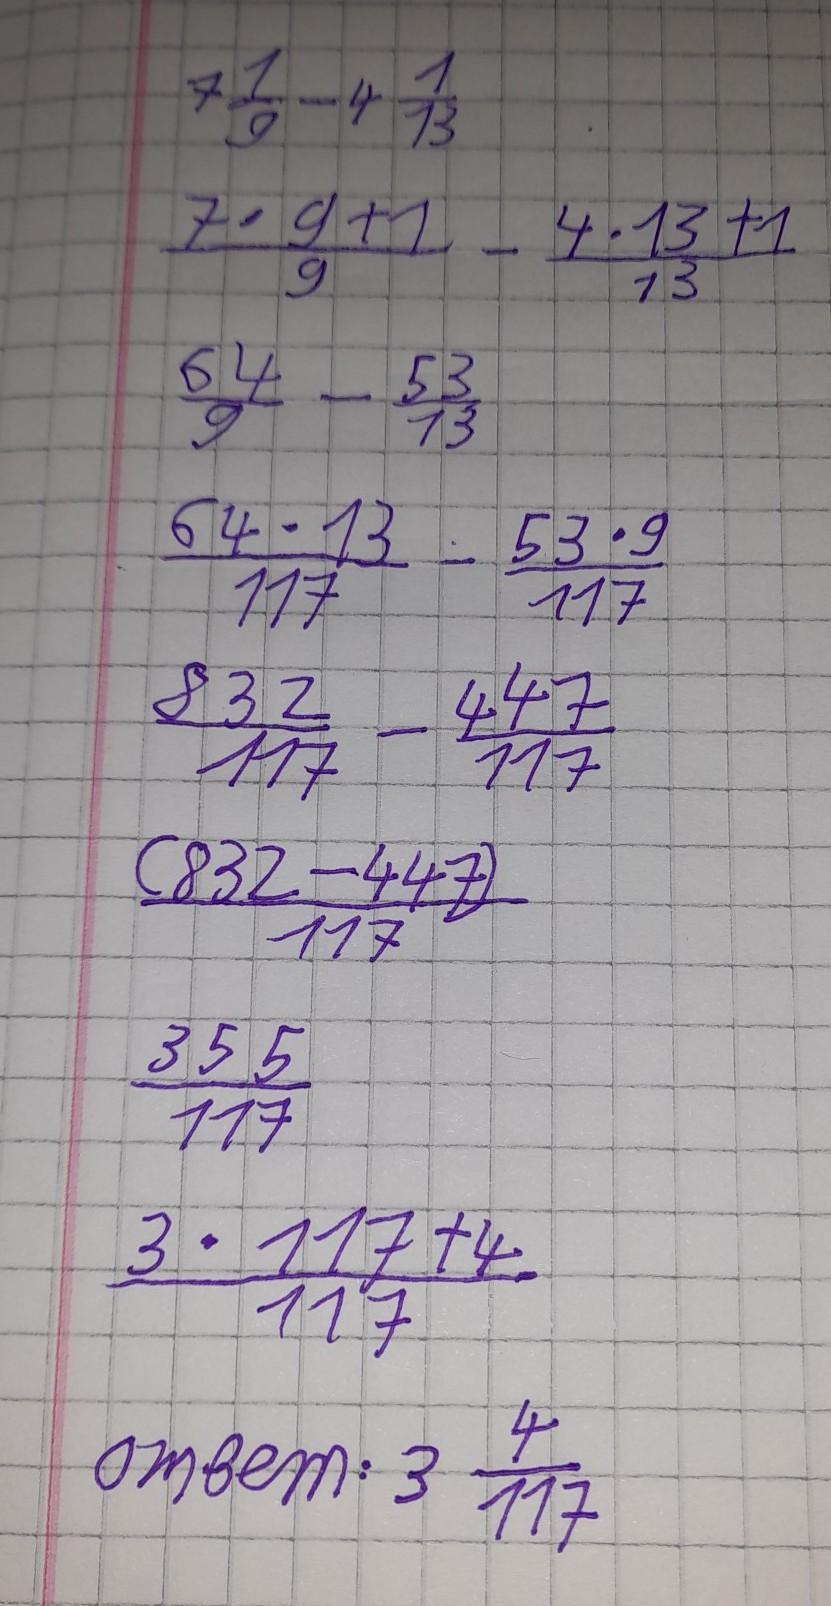 7 1/9 - 4 1/13
(7 · 9 + 1)/9 - (4 · 13 + 1)/13
64/9 - 53/13
(64 · 13)/117 - (53 · 9)/117
832/117 - 447/117
(832 - 447)/117
355/117
(3 · 117 + 4)/117
ответ: 3 4/117